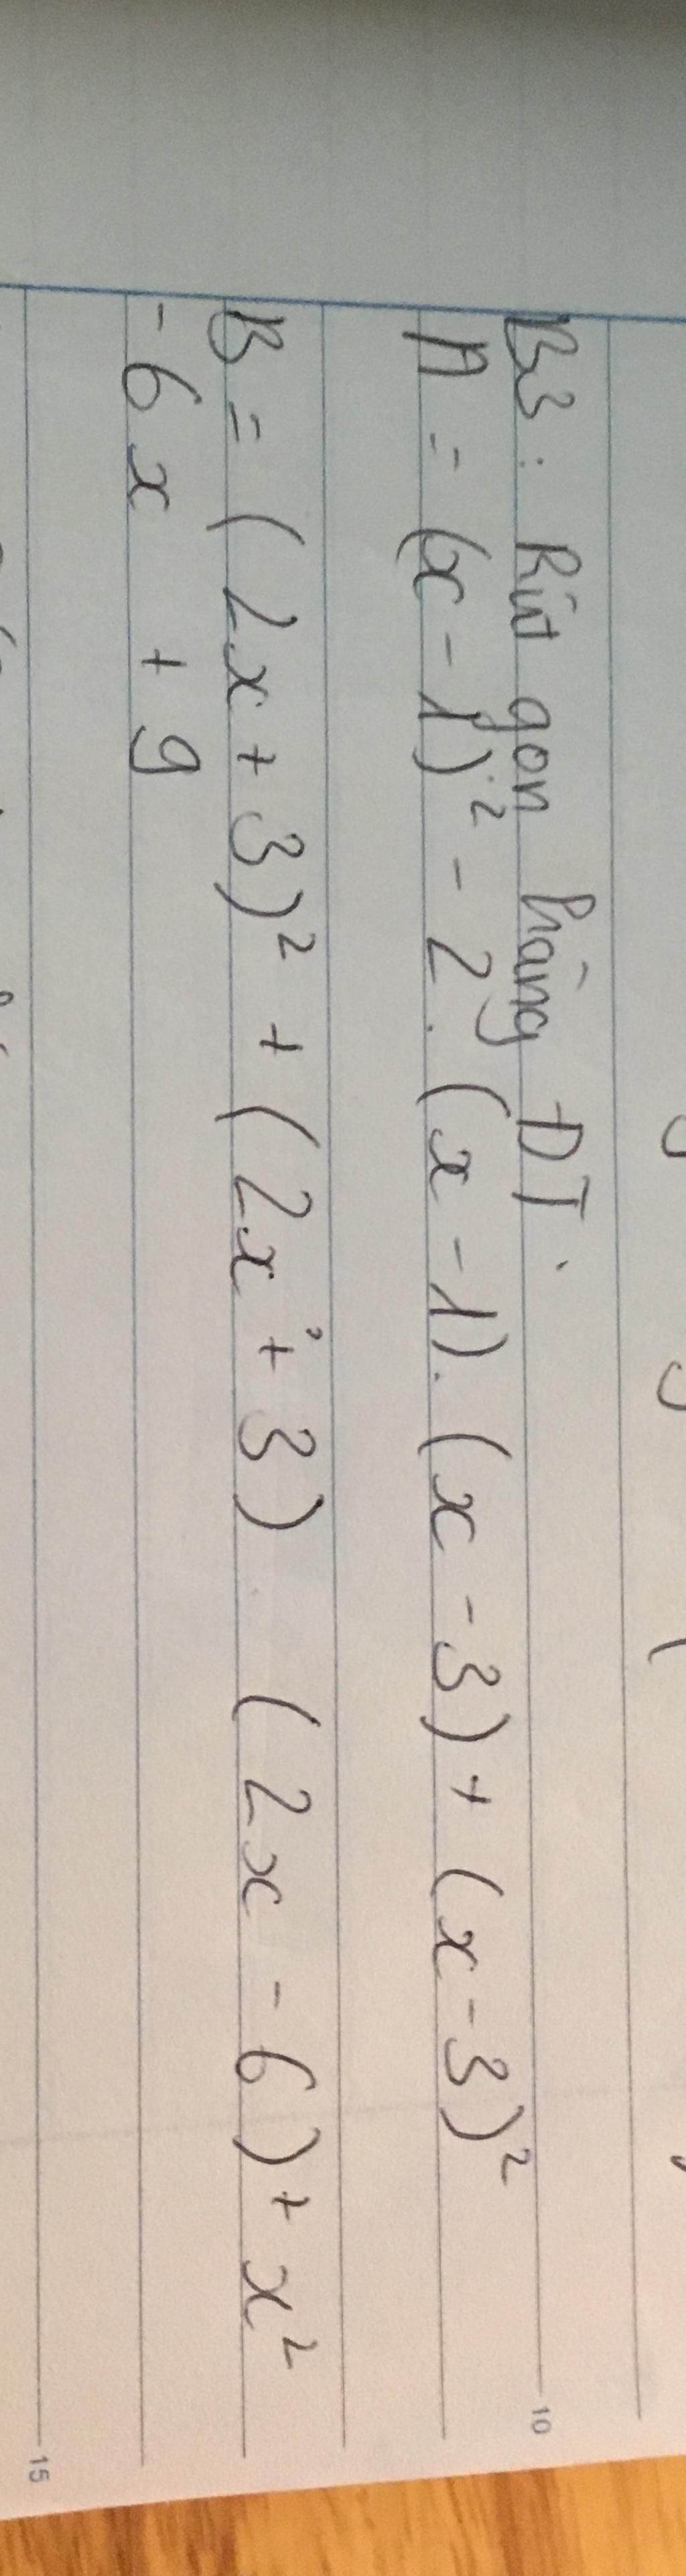 B3: Rút gọn hằng DT.
A = (x - 1)² - 2. (x - 1). (x - 3) + (x - 3)²
B = (2x + 3)² + (2x + 3) . (2x - 6) + x²
- 6x + 9
10
15